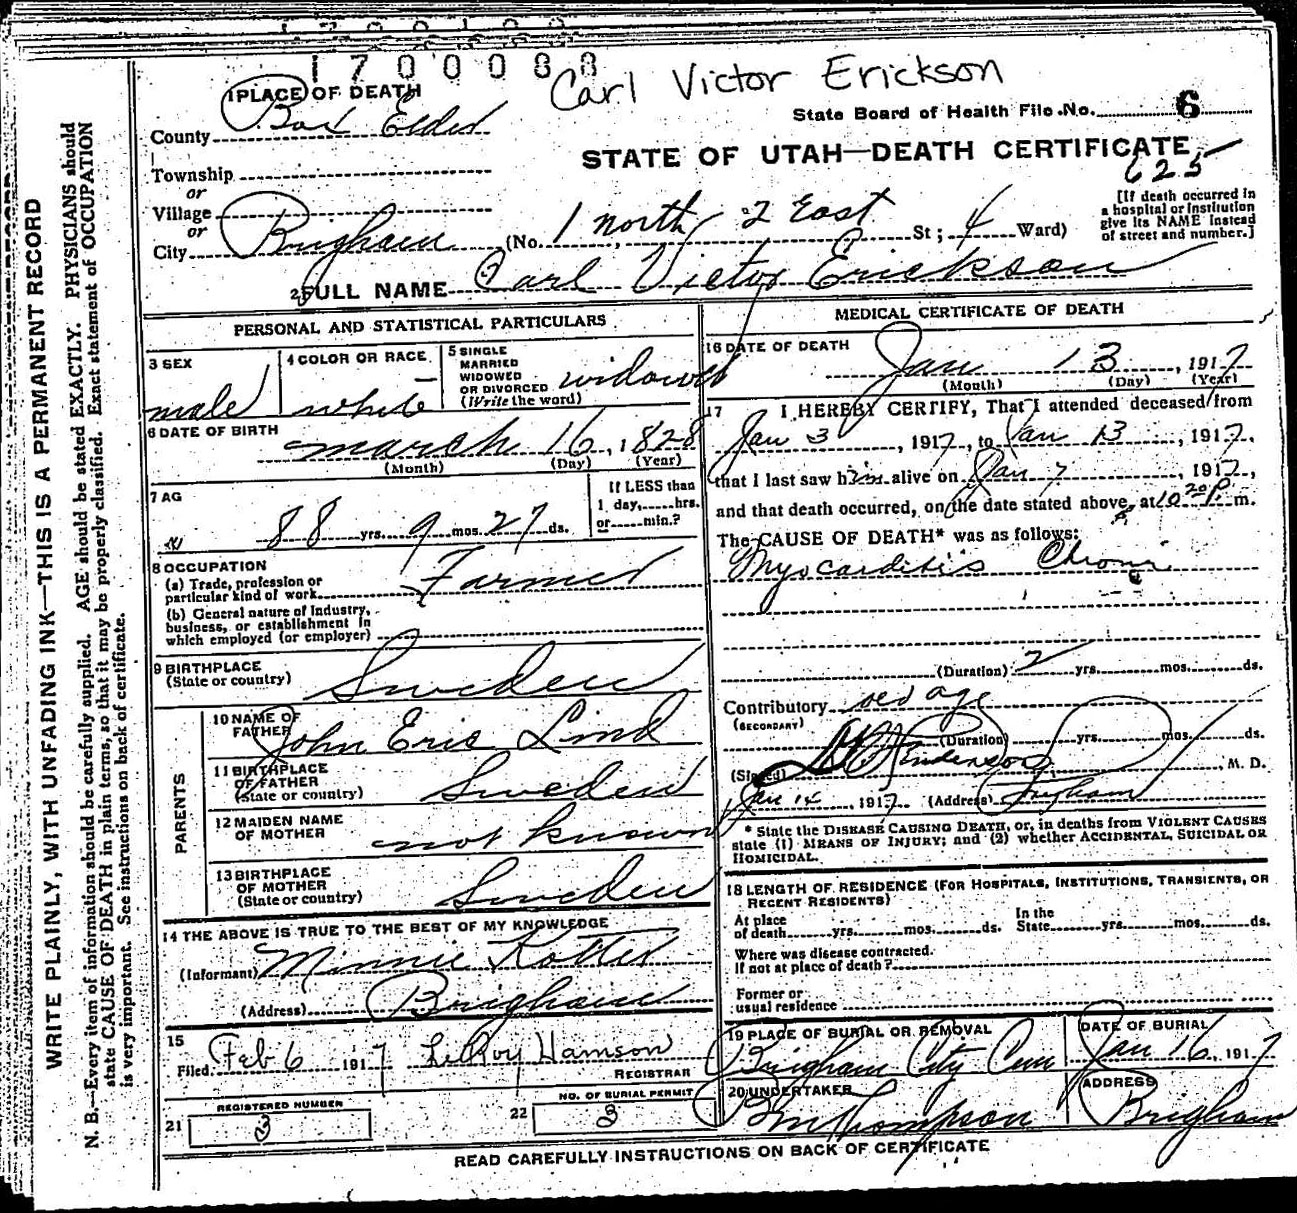 1700088
Carl Victor Erickson
1 PLACE OF DEATH
State Board of Health File No. 6
County Box Elder
STATE OF UTAH—DEATH CERTIFICATE
625
Township
or
Village
or
City Brigham (No. 1 north 2 East St; 4 Ward)
[If death occurred in a hospital or institution give its NAME instead of street and number.]
2 FULL NAME Carl Victor Erickson
PERSONAL AND STATISTICAL PARTICULARS
3 SEX male
4 COLOR OR RACE white
5 SINGLE MARRIED WIDOWED OR DIVORCED (Write the word) widowed
6 DATE OF BIRTH march 16, 1828
(Month) (Day) (Year)
7 AG
88 yrs. 9 mos. 27 ds.
If LESS than
1 day,......hrs.
or......min.?
8 OCCUPATION
(a) Trade, profession or
particular kind of work Farmer
(b) General nature of Industry,
business, or establishment in
which employed (or employer)
9 BIRTHPLACE
(State or country) Sweden
PARENTS
10 NAME OF
FATHER John Eric Lind
11 BIRTHPLACE
OF FATHER
(State or country) Sweden
12 MAIDEN NAME
OF MOTHER not known
13 BIRTHPLACE
OF MOTHER
(State or country) Sweden
14 THE ABOVE IS TRUE TO THE BEST OF MY KNOWLEDGE
(Informant) Minnie Kotter
(Address) Brigham
15
Filed Feb 6 1917 LeRoy Hamson
REGISTRAR
21 REGISTERED NUMBER 3
22 NO. OF BURIAL PERMIT 3
MEDICAL CERTIFICATE OF DEATH
16 DATE OF DEATH
Jan 13, 1917
(Month) (Day) (Year)
17 I HEREBY CERTIFY, That I attended deceased from
Jan 3, 1917, to Jan 13, 1917,
that I last saw him alive on Jan 7, 1917,
and that death occurred, on the date stated above, at 10 20 P. m.
The CAUSE OF DEATH* was as follows:
Myocarditis Chronic
(Duration) 2 yrs. mos. ds.
Contributory old age
(SECONDARY)
(Duration) yrs. mos. ds.
(Signed) M. D.
Jan 14, 1917 (Address) Brigham
* State the DISEASE CAUSING DEATH, or, in deaths from VIOLENT CAUSES
state (1) MEANS OF INJURY; and (2) whether ACCIDENTAL, SUICIDAL OR
HOMICIDAL.
18 LENGTH OF RESIDENCE (FOR HOSPITALS, INSTITUTIONS, TRANSIENTS, OR
RECENT RESIDENTS)
At place
of death......yrs.......mos.......ds.
In the
State......yrs.......mos.......ds.
Where was disease contracted.
If not at place of death?
Former or
usual residence
19 PLACE OF BURIAL OR REMOVAL
Brigham City Cem
DATE OF BURIAL
Jan 16, 1917
20 UNDERTAKER
Thompson
ADDRESS
Brigham
READ CAREFULLY INSTRUCTIONS ON BACK OF CERTIFICATE
WRITE PLAINLY, WITH UNFADING INK—THIS IS A PERMANENT RECORD
N. B.—Every item of information should be carefully supplied. AGE should be stated EXACTLY. PHYSICIANS should
state CAUSE OF DEATH in plain terms, so that it may be properly classified. Exact statement of OCCUPATION
is very important. See instructions on back of certificate.